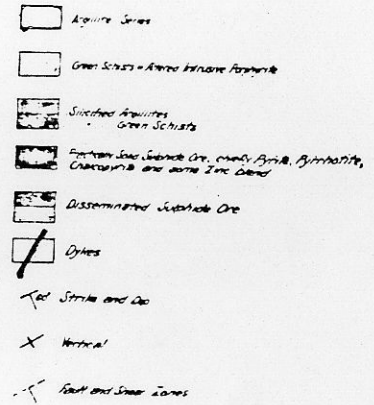 Argillite Series
Green Schists = Altered Intrusive Porphyrite
Silicified Argillites
Green Schists
Solid Sulphide Ore, chiefly Pyrite, Pyrrhotite,
Chalcopyrite and some Zinc blend
Disseminated Sulphide Ore
Dykes
Strike and Dip
Vertical
Fault and Shear Zones